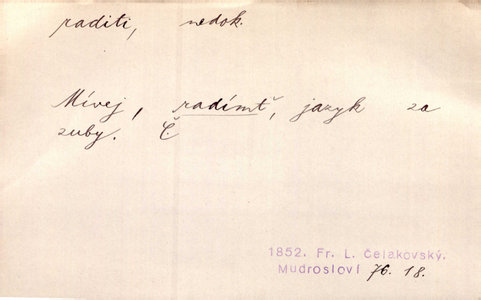 raditi, nedok.
Mívej, radímť, jazyk za
zuby. Č
1852. Fr. L. Čelakovský.
Mudrosloví 76. 18.